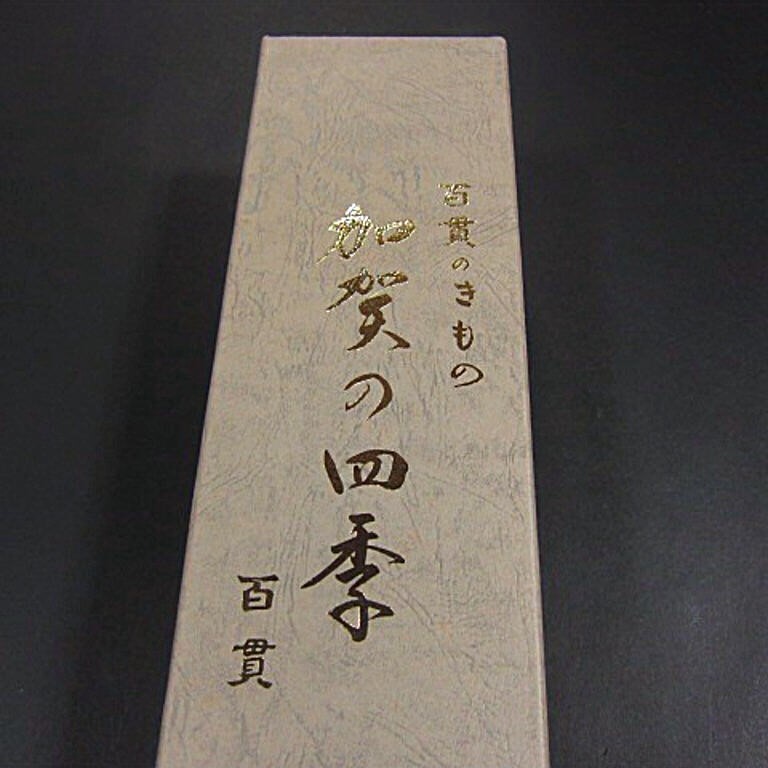 百貫のきもの
加賀の四季
百貫